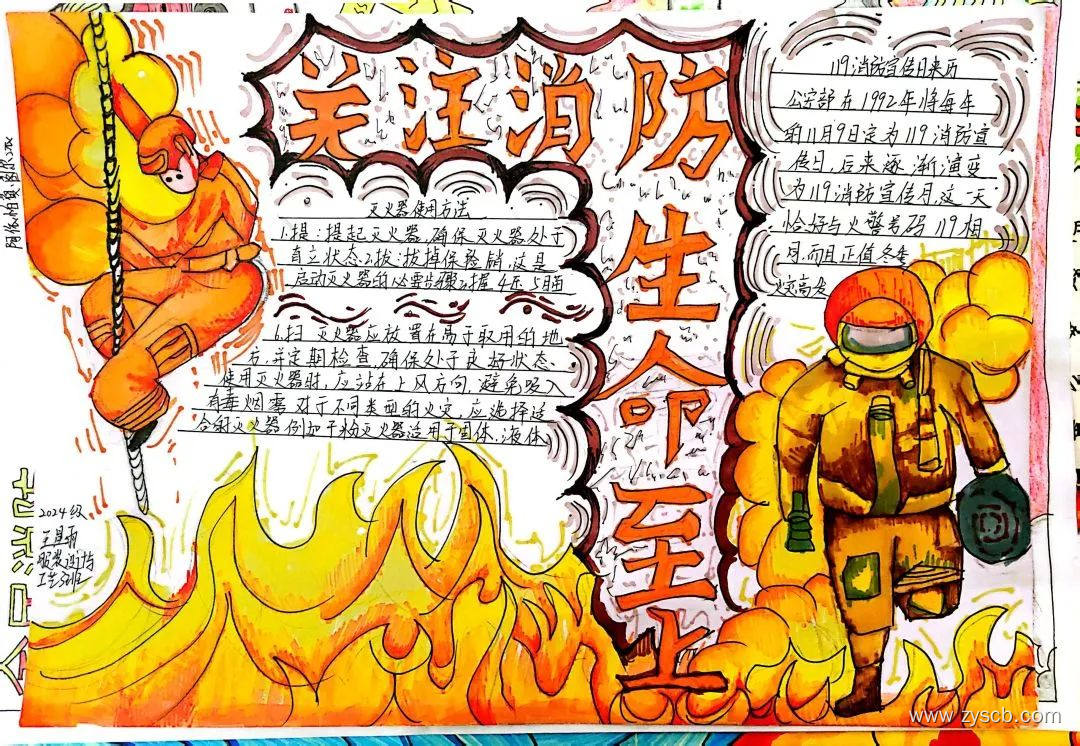 关注消防
生命至上
灭火器使用方法
1.提:提起灭火器,确保灭火器处于
直立状态.2拔:拔掉保险销,这是
启动灭火器的必要步骤3握 4压 5瞄
6.扫 灭火器应放置在易于取用的地
方,并定期检查,确保处于良好状态、
使用灭火器时,应站在上风方向,避免吸入
有毒烟雾 对于不同类型的火灾,应选择适
合的灭火器 例如干粉灭火器适用于固体、液体
119消防宣传月来历
公安部在1992年将每年
的11月9日定为119消防宣
传日,后来逐渐演变
为119消防宣传月,这一天
恰好与火警号码119相
同,而且正值冬季
火灾高发
2024级
服装设计与
工艺3班
www.zyscb.com